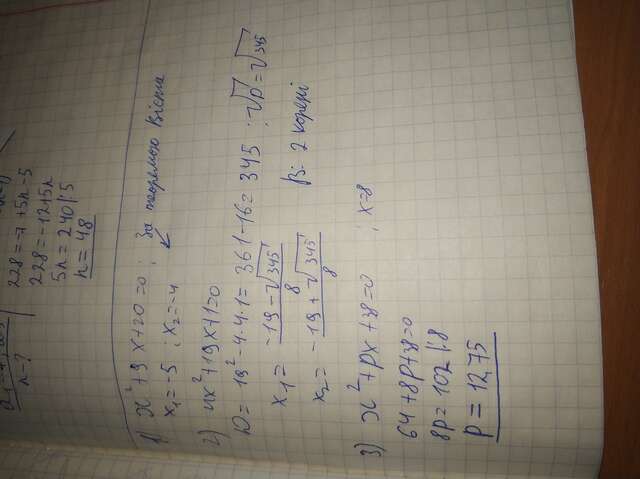 n-?
228=-7+5n-5
228=-12+5n
5n=240|:5
n=48
1) x²+9x+20=0 ; За теоремою Вієта
x₁=-5 ; x₂=-4
2) 4x²+19x+1=0
D=19²-4·4·1=361-16=345 ; √D=√345
x₁= (-19-√345)/8
x₂= (-19+√345)/8 В: 2 корені
3) x²+px+38=0 ; x=8
64+8p+38=0
8p=102|:8
p=12,75